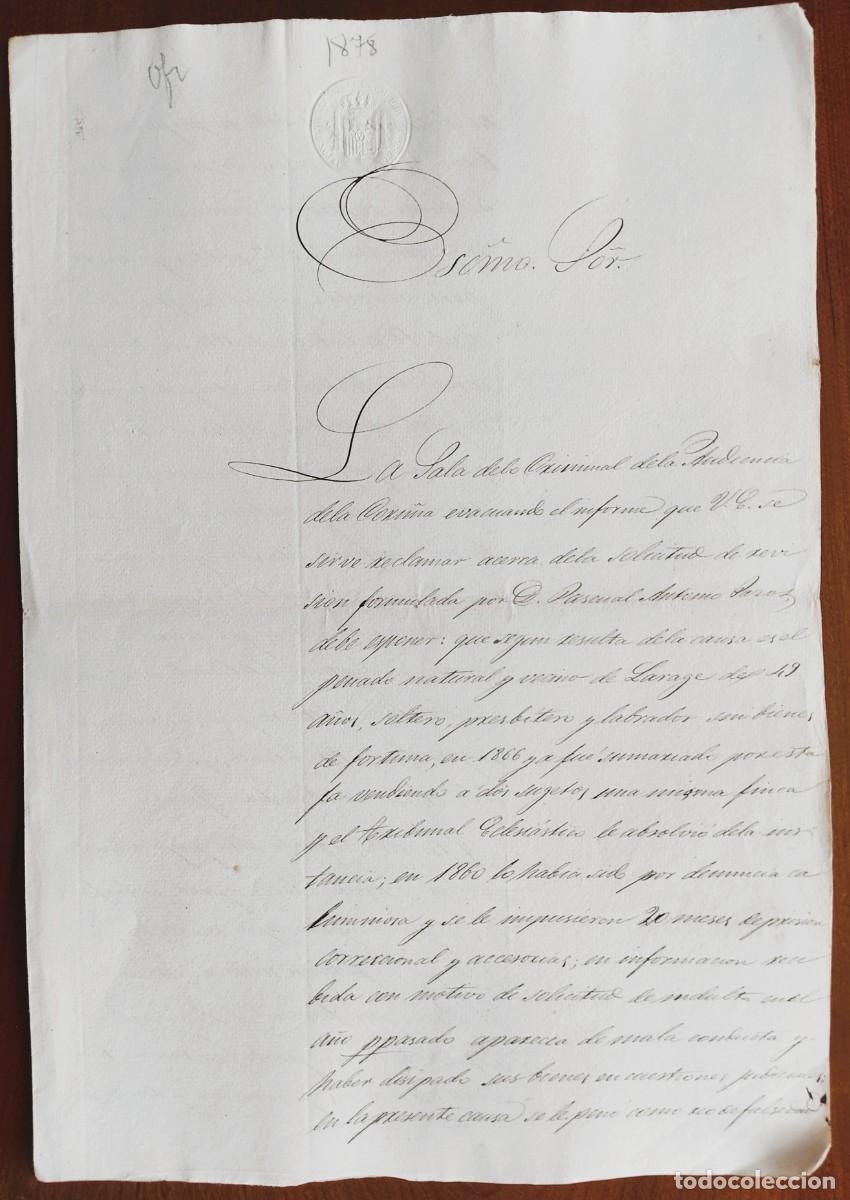 1878
Ofi
Escmo. Sõr.
La Sala delo Criminal dela Audiencia
dela Coruña evacuando el informe que V.E. se
sirve reclamar acerca dela solicitud de revi
sion formulada por D. Pascual Antonio
debe esponer: que segun resulta dela causa es el
penado natural y vecino de Larage de 49
años, soltero, presbitero y labrador sin bienes
de fortuna, en 1866 ya fué sumariado por esta
fa vendiendo á dos sugetos una misma finca
y el Tribunal Eclesiástico le absolvió dela ins-
tancia; en 1860 lo habia sido por denuncia ca
lumniosa y se le impusieron 20 meses de prision
correccional y accesorias; en informacion reci
bida con motivo de solicitud de indulto en el
año ppasado aparecia de mala conducta y
haber disipado sus bienes en cuestiones judiciales;
en la presente causa se le penó como reo de falsedad
todocoleccion